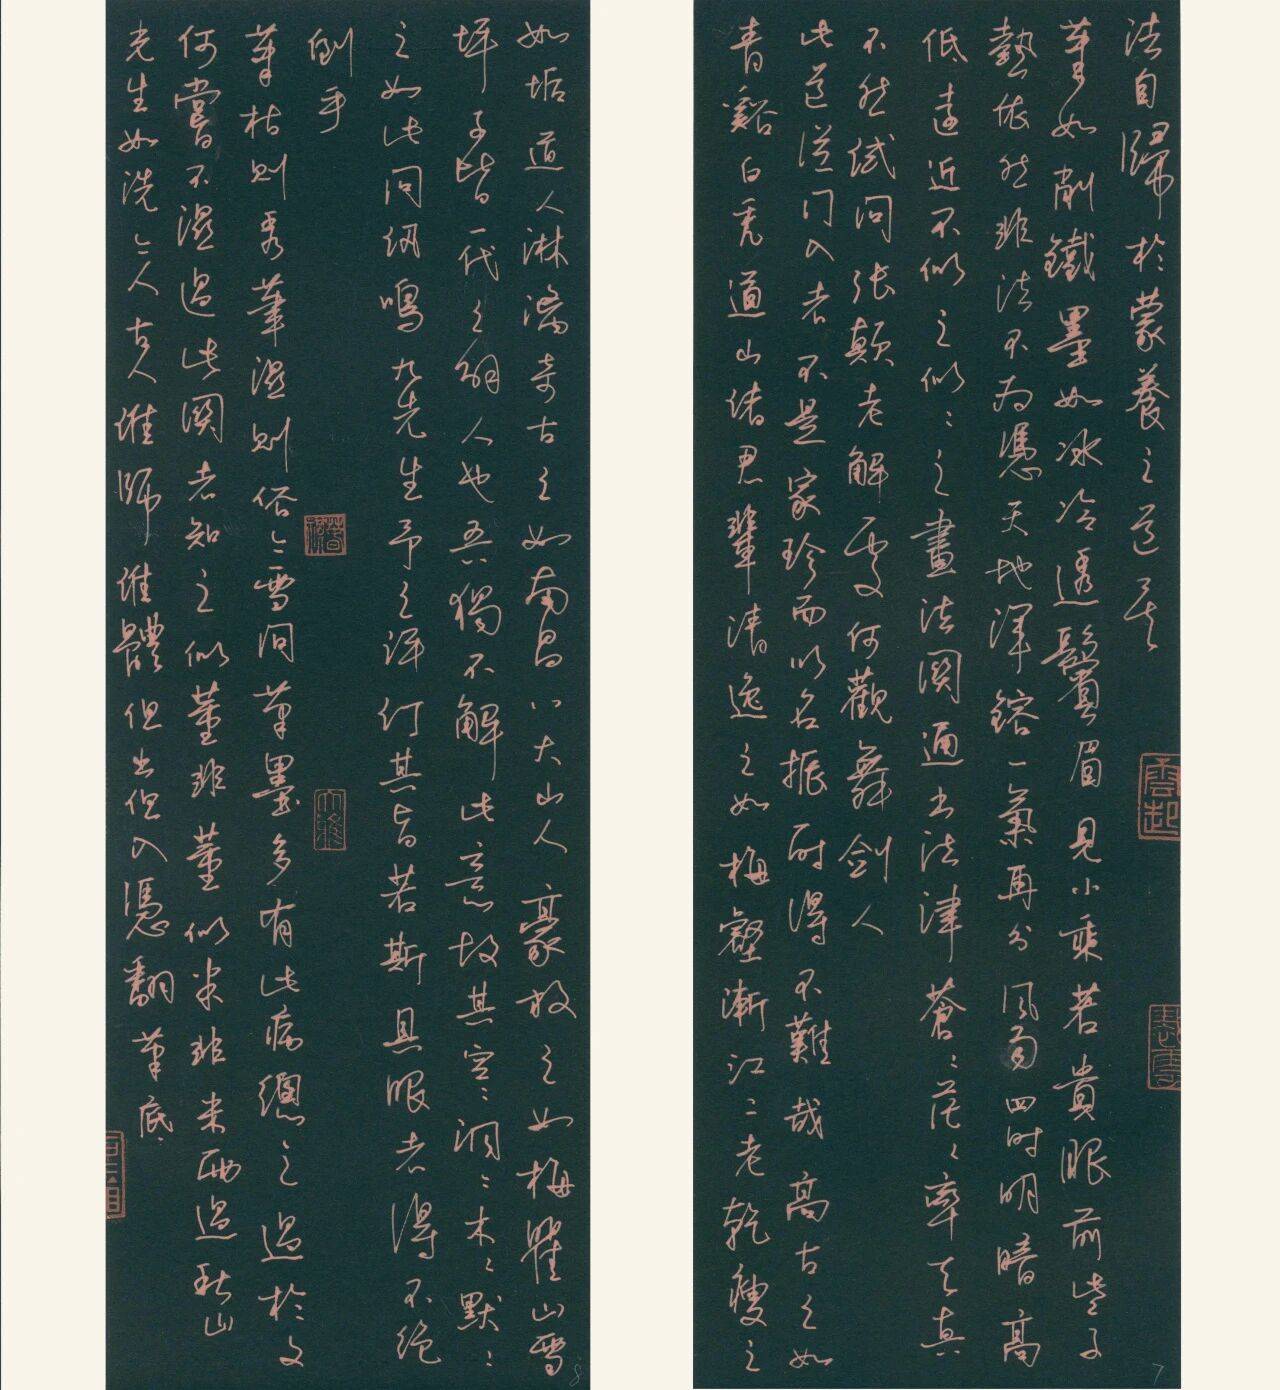 法自歸於蒙養之道矣
筆如削鐵墨如冰冷透鬢眉見小乘若貴眼前些子
熱依然非法不為憑天地渾鎔一氣再分風雨四時明暗高
低遠近不似之似〻之畫法關通書法津蒼〻茫〻率天真
不然試問張顛老解處何觀舞劍人
此道從門入者不是家珍而以名振時得不難哉高古之如
青谿白禿道山諸君輩清逸之如梅壑漸江二老乾瘦之
如垢道人淋漓奇古之如南昌八大山人豪放之如梅瞿山雪
坪子皆一代之解人也吾獨不解此意故其空〻洞〻木〻默〻
之如此問紉鳴九先生予之評訂其旨若斯具眼者得不絕
倒乎
筆枯則秀筆濕則俗今雲間筆墨多有此病總之過於文
何嘗不濕過此關者知之似董非董似米非米雨過秋山
光生如洗今人古人誰師誰體但出但入憑翻筆底
雲起
7
8